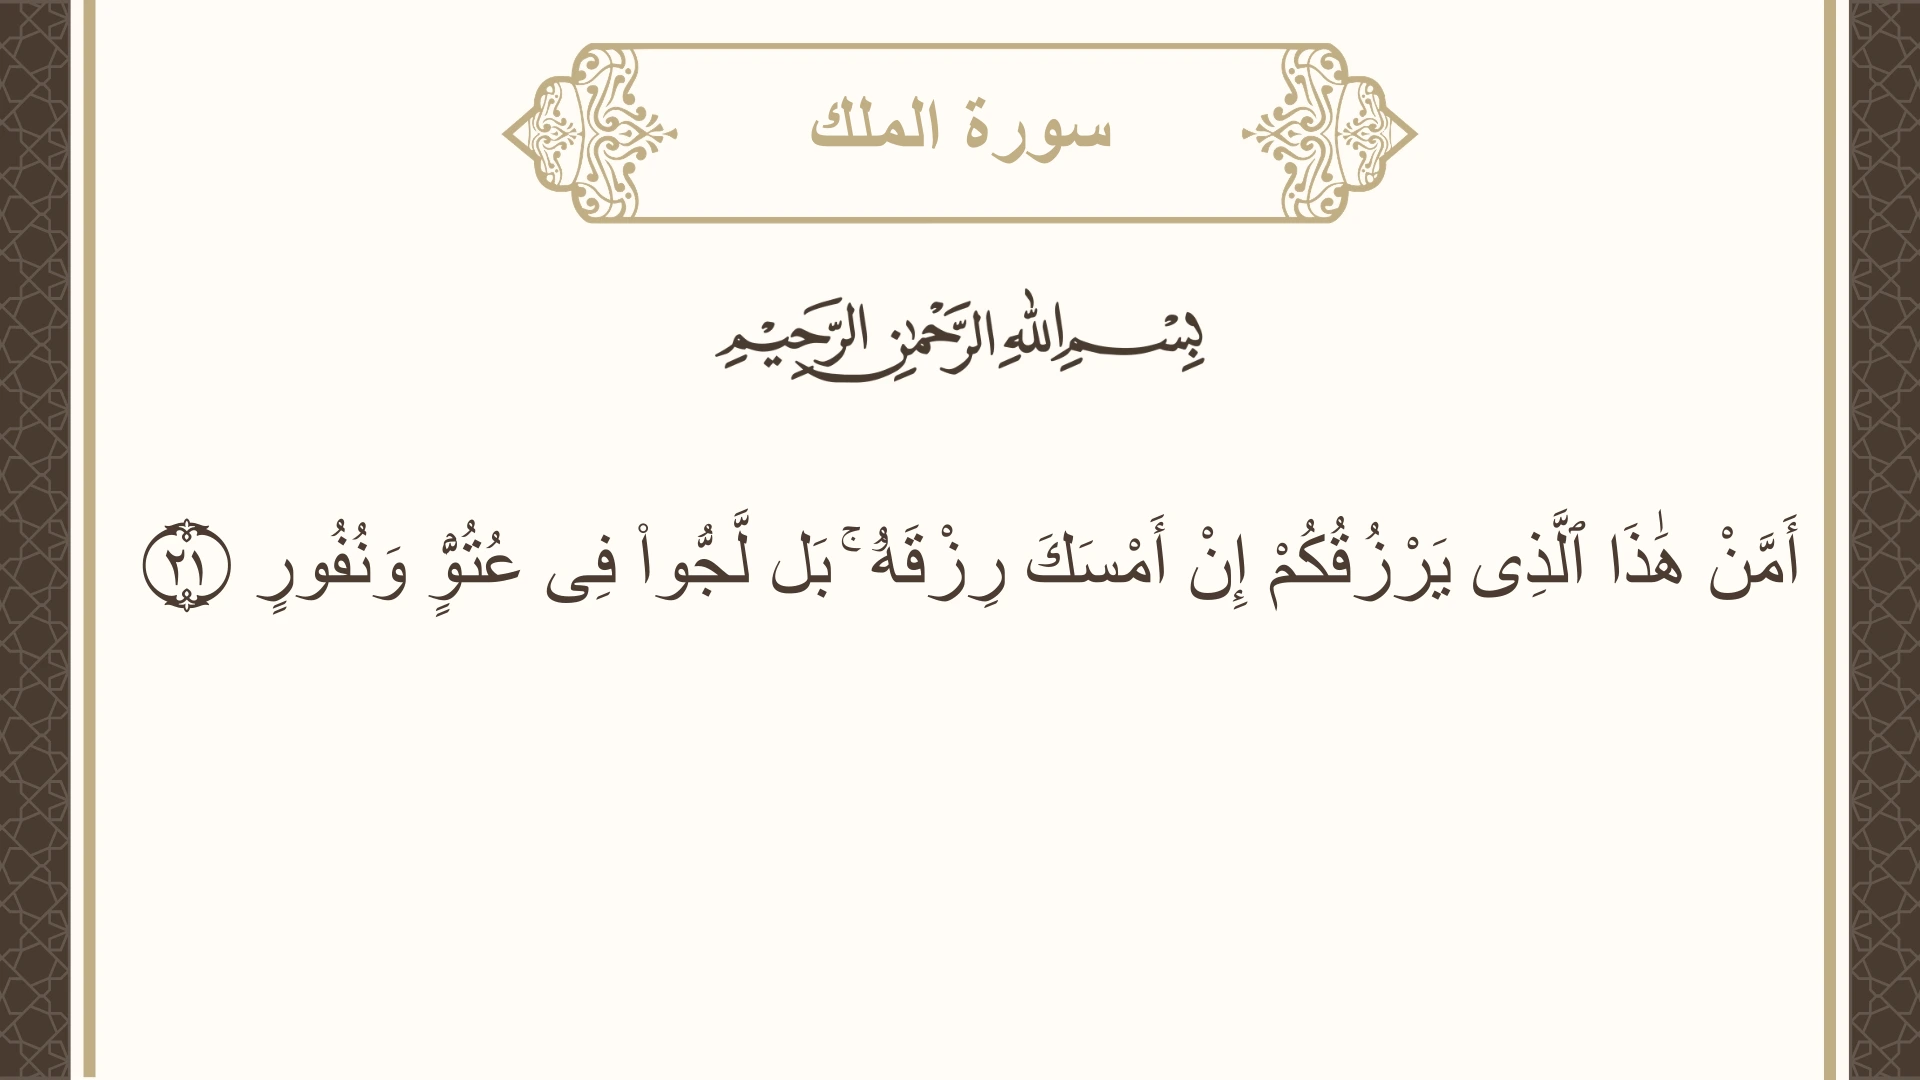 سورة الملك
بِسْمِ اللهِ الرَّحْمٰنِ الرَّحِيْمِ
أَمَّنْ هَٰذَا ٱلَّذِى يَرْزُقُكُمْ إِنْ أَمْسَكَ رِزْقَهُۥ ۚ بَل لَّجُّوا۟ فِى عُتُوٍّۢ وَنُفُورٍ ﴿٢١﴾